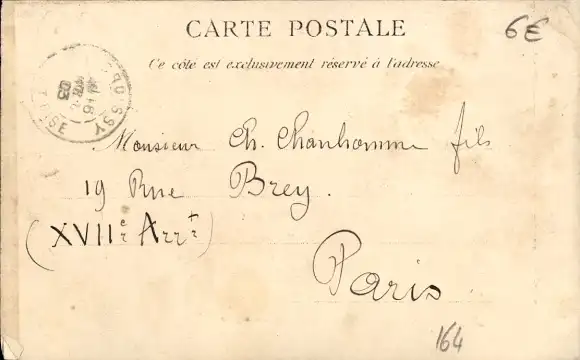 CARTE POSTALE
6€
Ce côté est exclusivement réservé à l'adresse
03
OISE
Monsieur Ch. Chanhomme fils
19 Rue Brey.
(XVIIe Arrt)
Paris
164